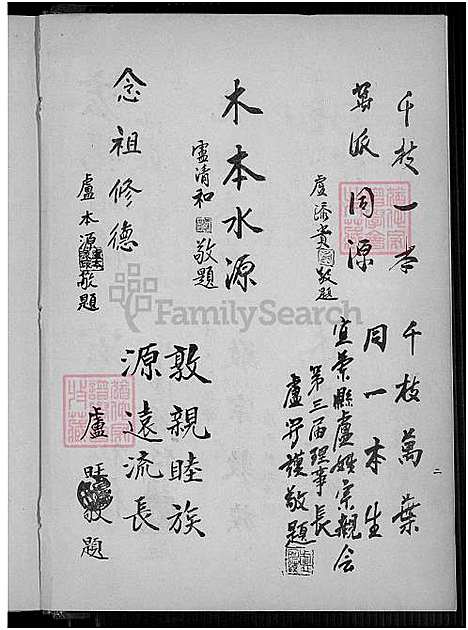 千枝一本
萬派同源
盧添貴敬題
千枝萬葉
同一本生
宜蘭縣盧姓宗親會
第三届理事長
敬題
木本水源
盧清和敬題
敦親睦族
源遠流長
盧
敬題
念祖修德
盧本源敬題
二
FamilySearch